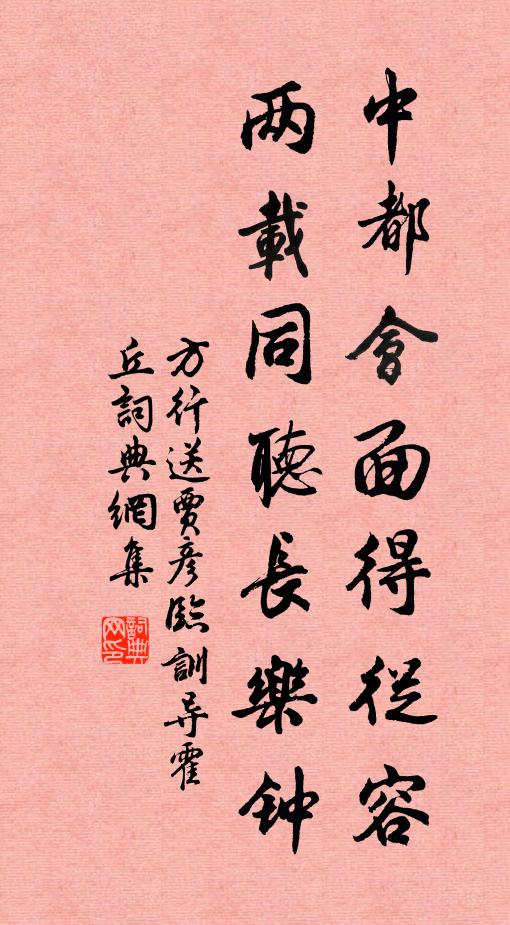 中都會面得從容
两載同聽長樂钟
方行送賈彦臨訓导霍
丘詞典網集
詞典网印